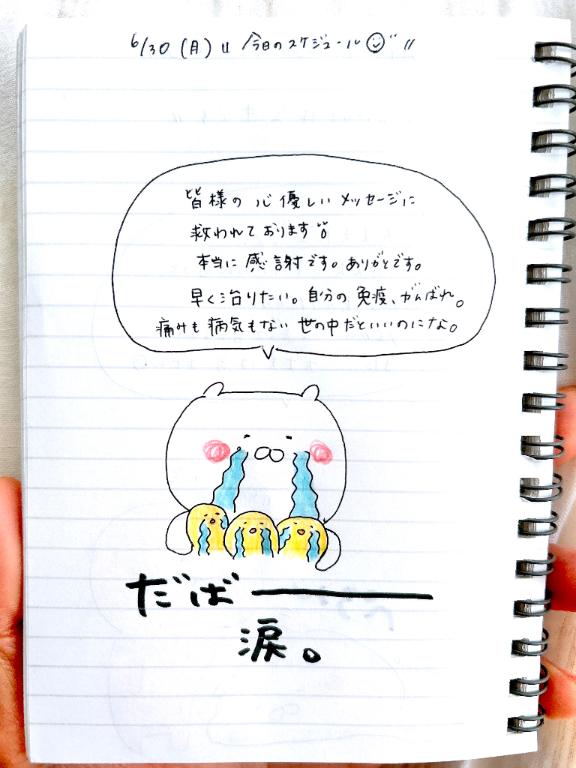 6/30(月)〃今日のスケジュール〃
皆様の心優しいメッセージに
救われております
本当に感謝です。ありがとです。
早く治りたい。自分の免疫、がんばれ。
痛みも病気もない世の中だといいのにな。
だばー
涙。